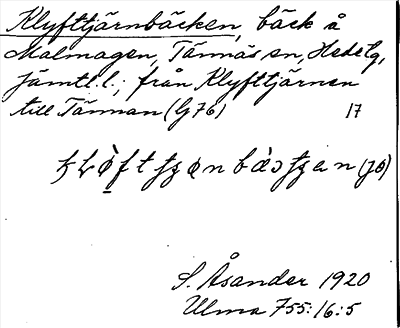 Klyfttjärnbäcken, bäck å
Malmagen, Tännäs sn, Hede tg,
Jämtl. l.; från Klyfttjärnen
till Tännan (G76) 17
(JÖ)
S. Åsander 1920
Ulma 755:16:5